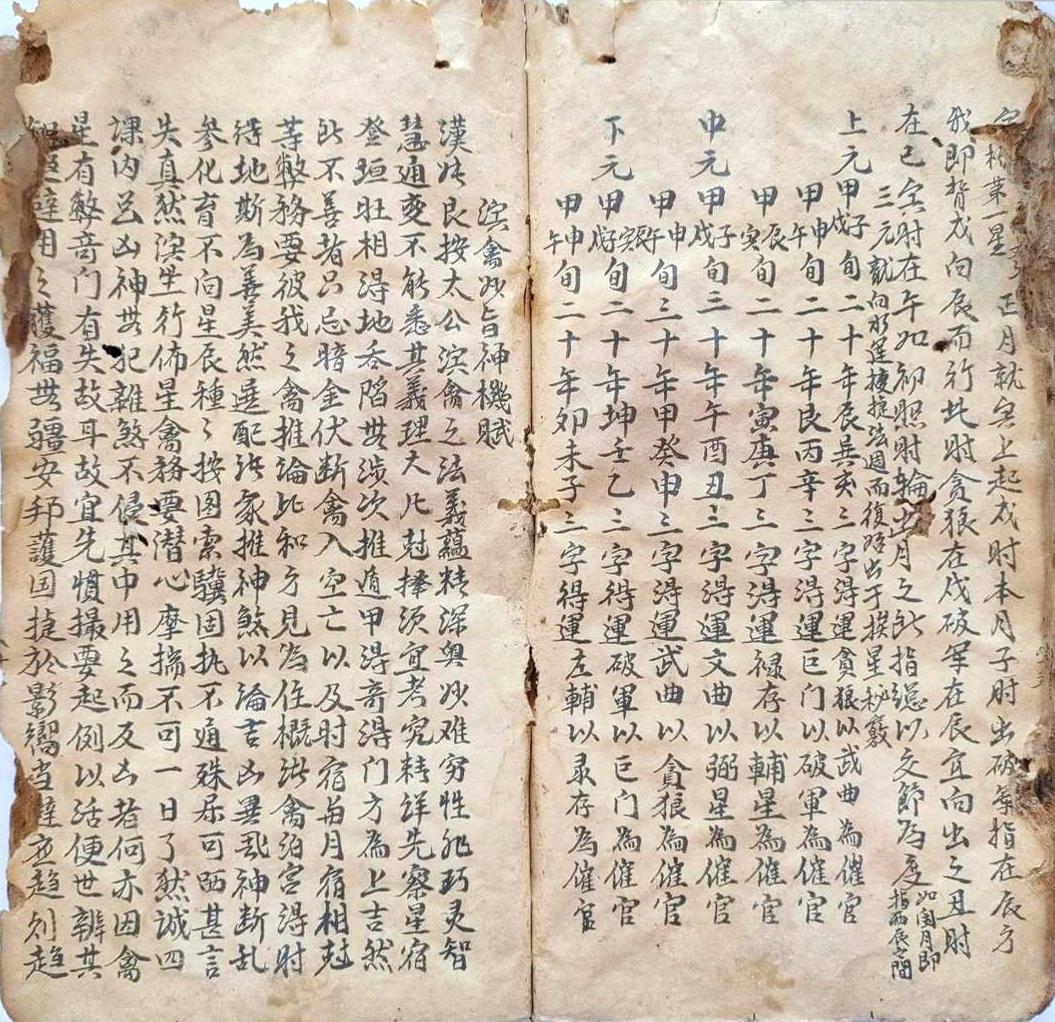 第一星 正月就寅上起戌时本月子时出破军指在辰方
我即背戌向辰而行此时贪狼在戌破军在辰宜向出之丑时
在巳寅时在午如初照时轮出月之此指总以交節為度如闰月即指兩辰之間
三元就向水运挨掟法週而復始出于挨星秘竅
上元甲子甲戌旬二十年辰巽亥三字得運貪狼以武曲為催官
甲申甲午旬二十年艮丙辛三字得運巨门以破軍為催官
甲辰甲寅旬二十年寅庚丁三字得運禄存以輔星為催官
中元甲子甲戌旬三十年午酉丑三字得運文曲以弼星為催官
甲申甲午旬三十年甲癸申三字得運武曲以貪狼為催官
下元甲子甲戌旬二十年坤壬乙三字得運破軍以巨门為催官
甲申甲午旬二十年卯未子三字得運左輔以录存為催官
演禽妙旨神機賦
漢此良按太公演禽之法義蘊精深奥妙难穷性非巧灵智
慧通变不能悉其義理大凡尅擇须宜考究精详先察星宿
登垣旺相得地吞陷無涉次推遁甲得奇得门方為上吉然
此不善者只忌暗金伏断禽入空亡以及时宿與月宿相尅
等弊務要彼我之禽推論比和方見為住概此禽泊宫得时
得地斯為善美然選配此象推神煞以論吉凶異哉神断乱
参化育不向星辰種々按图索驥固执不通殊属可哂甚言
失真然演生行佈星禽務要潜心摩揣不可一日了然诚四
課内吕凶神無犯雜煞不侵其中用之而反凶者何亦因禽
星有弊奇门有失故耳故宜先慣撮要起例以活便世辨其
用之護福無疆安邦護国捷於影響当避应趋则趋